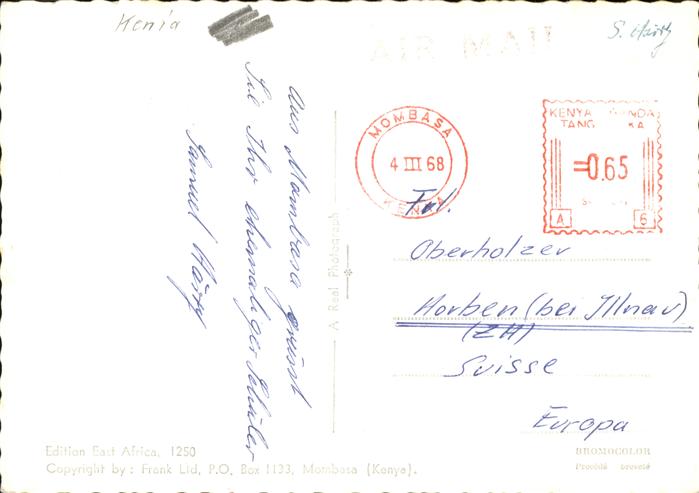 Kenia
AIR MAIL
Aus Mombasa grüsst
Sie Ihr ehemaliger Schüler
Samuel
A Real Photograph
MOMBASA
4 III 68
KENYA
KENYA UGANDA
TANG KA
=0.65
A 6
Frl.
Oberholzer
Horben (bei Illnau)
(ZH)
Suisse
Europa
Edition East Africa, 1250
Copyright by: Frank Ltd, P.O. Box 1133, Mombasa (Kenya).
BROMOCOLOR
Procédé breveté